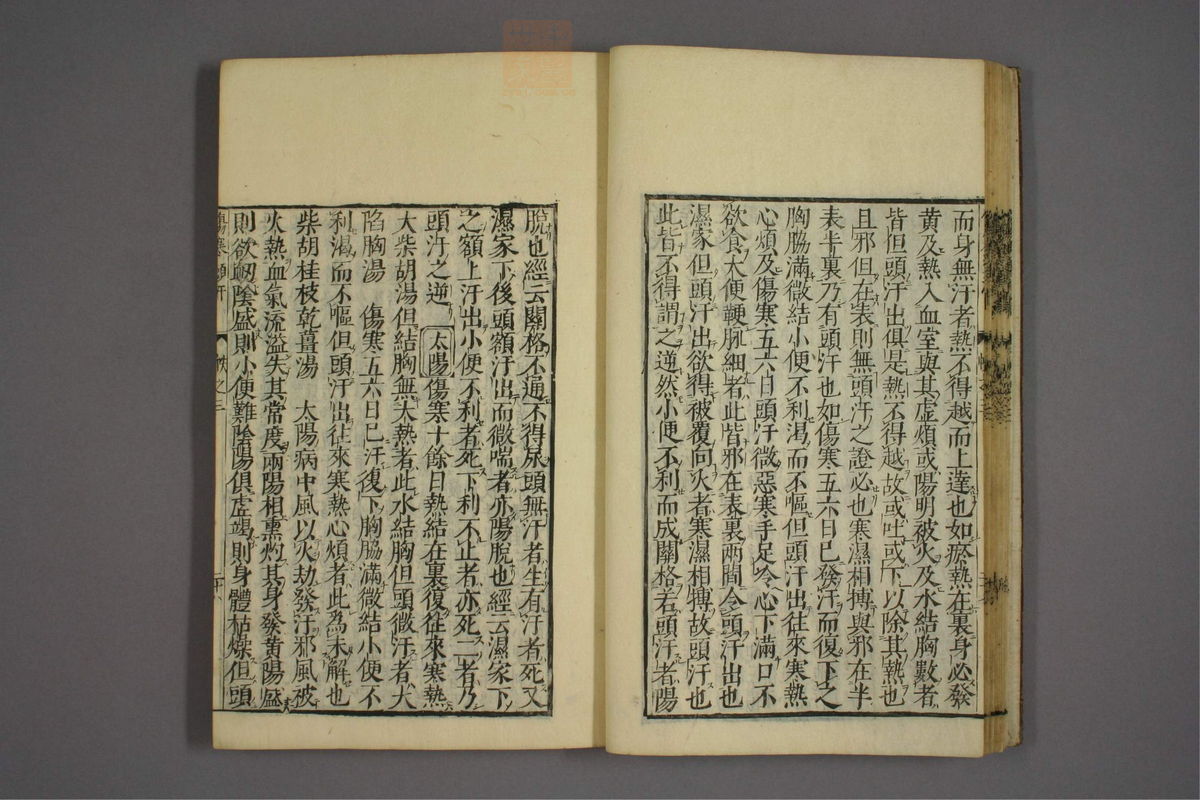 而身無汗者熱不得越而上達也如瘀熱在裏身必發
黄及熱入血室與其虚煩或陽明被火及水結胸數者
皆但頭汗出俱是熱不得越故或吐或下以除其熱也
且邪但在表則無頭汗之證必也寒濕相搏與邪在半
表半裏乃有頭汗也如傷寒五六日已發汗而復下之
胸脇滿微結小便不利渴而不嘔但頭汗出往來寒熱
心煩及傷寒五六日頭汗微惡寒手足冷心下滿口不
欲食大便鞕脉細者此皆邪在表裏兩間令頭汗出也
濕家但頭汗出欲得被覆向火者寒濕相搏故頭汗也
此皆不得謂之逆然小便不利而成關格若頭汗者陽
脫也經云關格不通不得尿頭無汗者生有汗者死又
濕家下後頭額汗出而微喘者亦陽脫也經云濕家下
之額上汗出小便不利者死下利不止者亦死二者乃
頭汗之逆 太陽傷寒十餘日熱結在裏復往來寒熱
大柴胡湯但結胸無大熱者此水結胸但頭微汗者大
陷胸湯 傷寒五六日已汗復下胸脇滿微結小便不
利渴而不嘔但頭汗出往來寒熱心煩者此為未解也
柴胡桂枝乾薑湯 太陽病中風以火劫發汗邪風被
火熱血氣流溢失其常度兩陽相熏灼其身發黄陽盛
則欲衂陰盛則小便難陰陽俱虚竭則身體枯燥但頭
傷寒 頭汗 卷之三